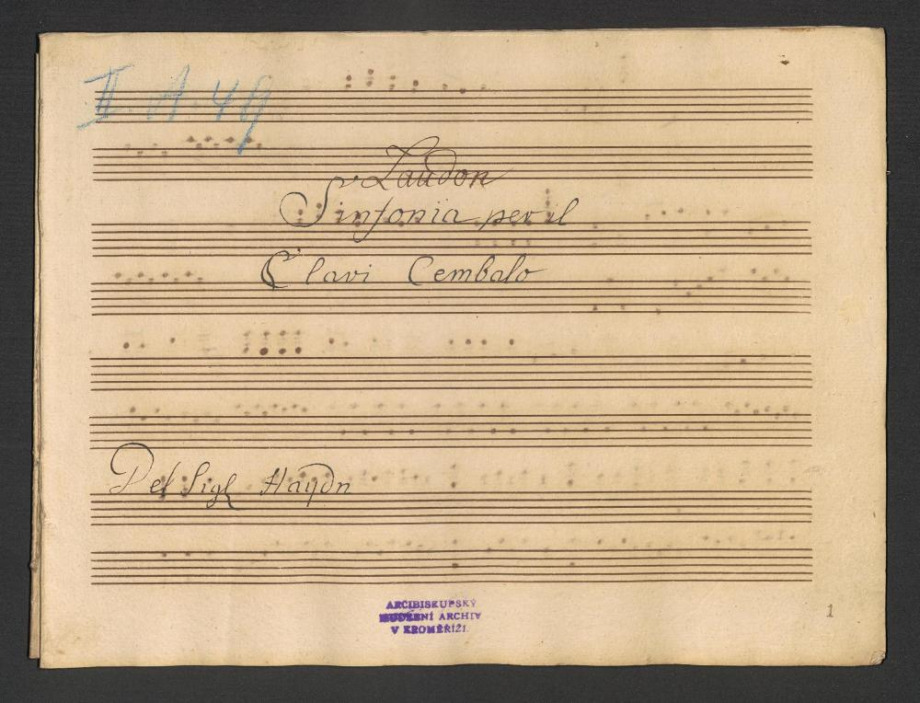 II A 49
Laudon
Sinfonia per il
Clavi Cembalo
Del Sigl Haydn
ARCIBISKUPSKÝ
HUDEBNÍ ARCHIV
V KROMĚŘÍŽI
1